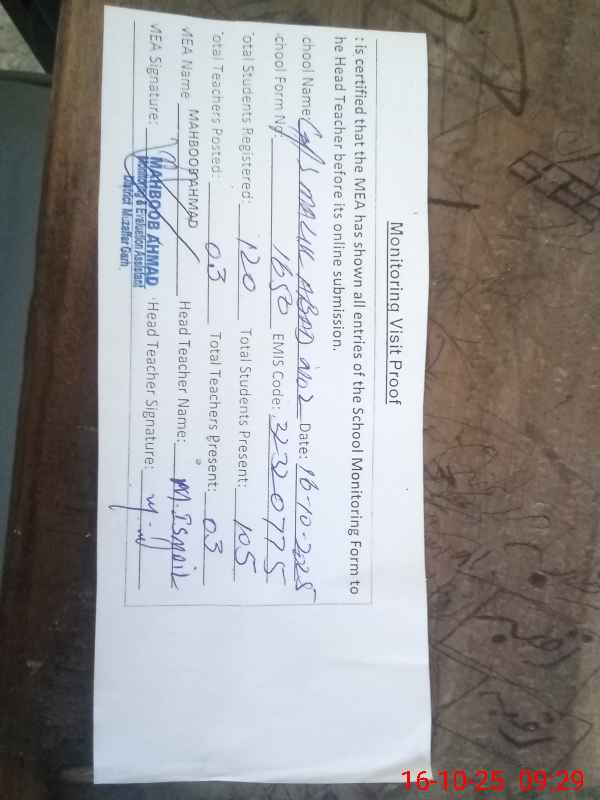 Monitoring Visit Proof
: is certified that the MEA has shown all entries of the School Monitoring Form to
he Head Teacher before its online submission.
chool Name: MALIK ABAD No 2 Date: 16-10-2025
chool Form No. 1650 EMIS Code: 32320775
otal Students Registered: 120 Total Students Present: 105
otal Teachers Posted: 03 Total Teachers Present: 03
MEA Name MAHBOOB AHMAD Head Teacher Name: M. Ismail
MEA Signature: Head Teacher Signature:
MAHBOOB AHMAD
Monitoring & Evaluation Assistant
District Muzaffar Garh.
16-10-25 09:29